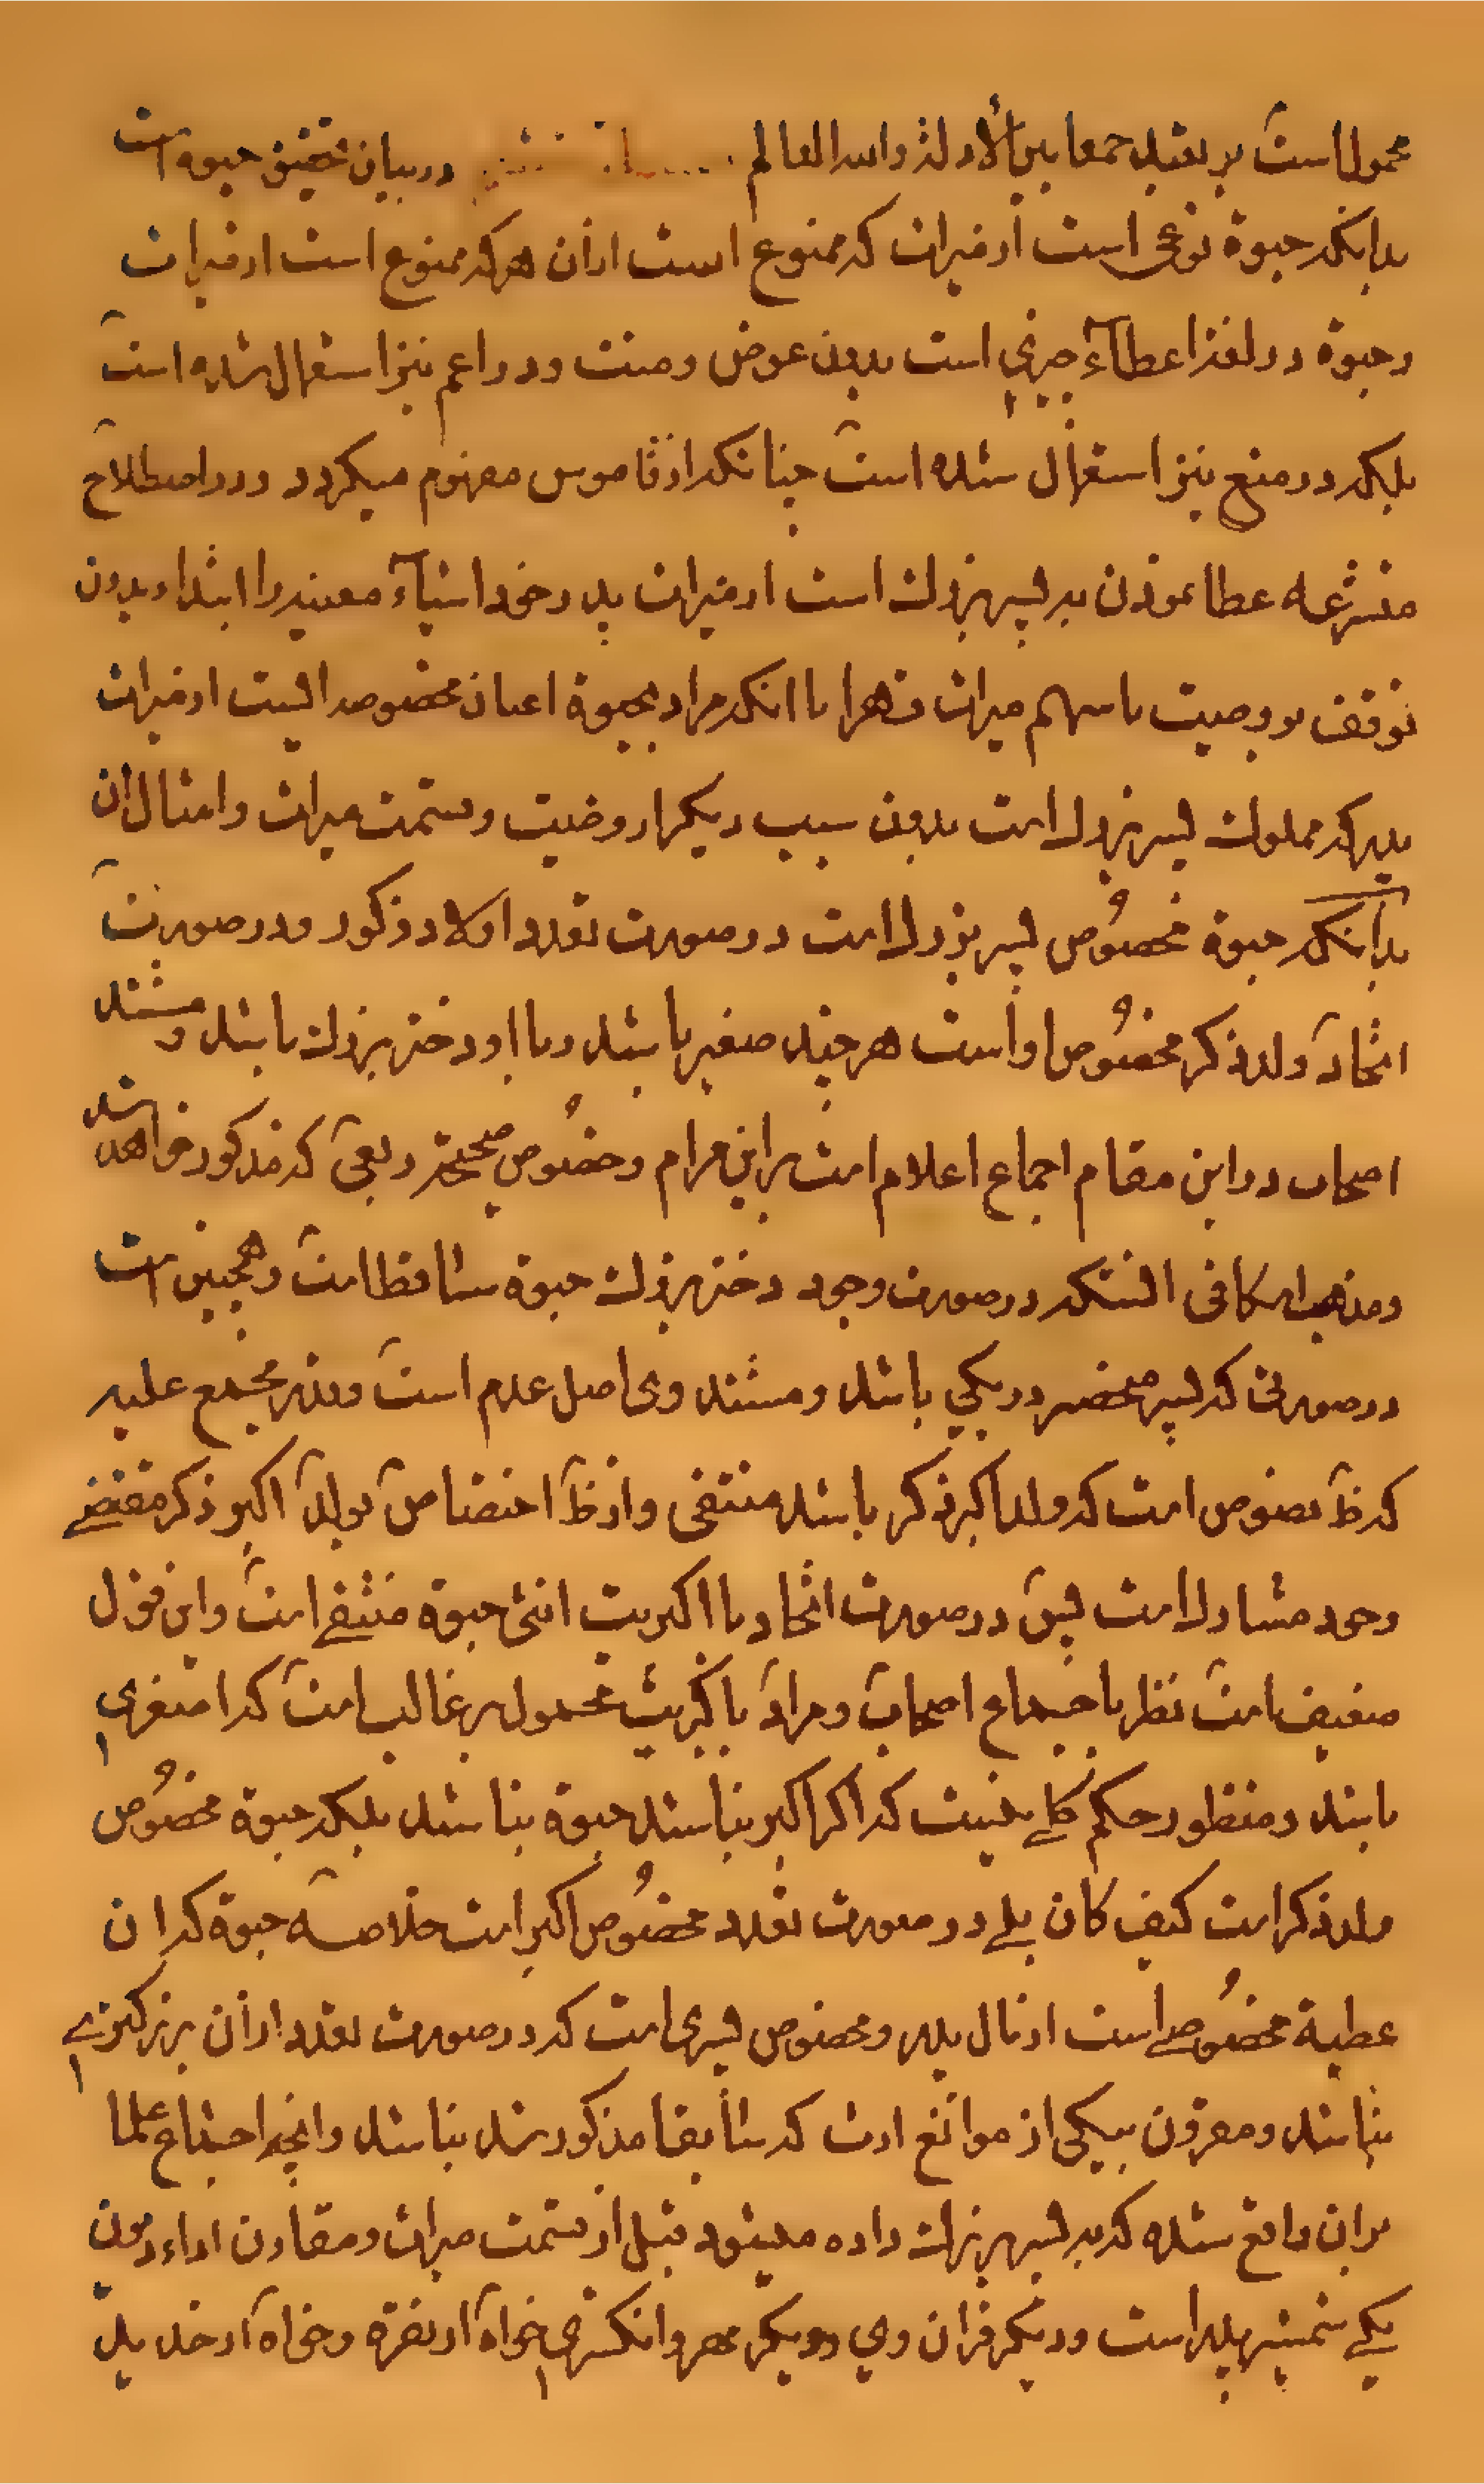 محمول است بر تقیه جمعا بین الأدلة والله العالم در بیان تحقیق حبوه است
بدانکه حبوة نوعی است از میراث که ممنوع است از آن هر که ممنوع است از میراث
و حبوة در لغة اعطآء چیزی است بدون عوض و منت و در اعم نیز استعمال شده است
بلکه در منع نیز استعمال شده است چنانکه از قاموس مفهوم میکردد و در اصطلاح
متشرعه عطا نمودن به پسر بزرك است از میراث پدر خود اشیآء معینه را ابتداء بدون
توقف بر وصیت یا سهم میراث قهرا یا انکه مراد بحبوة اعیان مخصوصه ایست از میراث
پدر که مملوك پسر بزرك است بدون سبب دیکر از وصیت و قسمت میراث و امثال ان
بدانکه حبوة مخصوص پسر بزرك است در صورت تعدد اولاد ذکور و در صورت
اتحاد ولد ذکر مخصوص او است هر چند صغیر باشد و با او دختر بزرك باشد و مستند
اصحاب در این مقام اجماع اعلام است بر این مرام و خصوص صحیحة ربعی که مذکور خواهد شد
و مذهب اسکافی انستکه در صورت وجود دختر بزرك حبوة ساقط است و همچنین است
در صورتی که پسر منحصر در یکی باشد و مستند وی اصل عدم است و قدر مجمع علیه
که ظ نصوص است که ولد اکبر ذکر باشد منتفی و از ظ اختصاص بولد اکبر ذکر مقتضی
وجود مشارك است پس در صورت اتحاد یا اکبریت انثی حبوة منتفی است و این قول
ضعیف است نظر باجماع اصحاب و مراد باکبریت محمول بر غالب است که اصغری
باشد و منظور حکم کلی نیست که اکر اکبر نباشد حبوة نباشد بلکه حبوة مخصوص
ولد ذکر است کیف کان بلی در صورت تعدد مخصوص اکبر است خلاصه حبوة که ان
عطیة مخصوصی است از مال پدر و مخصوص پسری است که در صورت تعدد از آن بزرکتری
نباشد و مقرون بیکی از موانع ارث که سابقا مذکور شد نباشد و انچه اجماع علما
بر ان واقع شده که به پسر بزرك داده میشود قبل از قسمت میراث و مقارن اداء دیون
یکی شمشیر پدر است و دیکر قران وی و دیکر مهر و انکشتری خواه از نقره و خواه از حدید